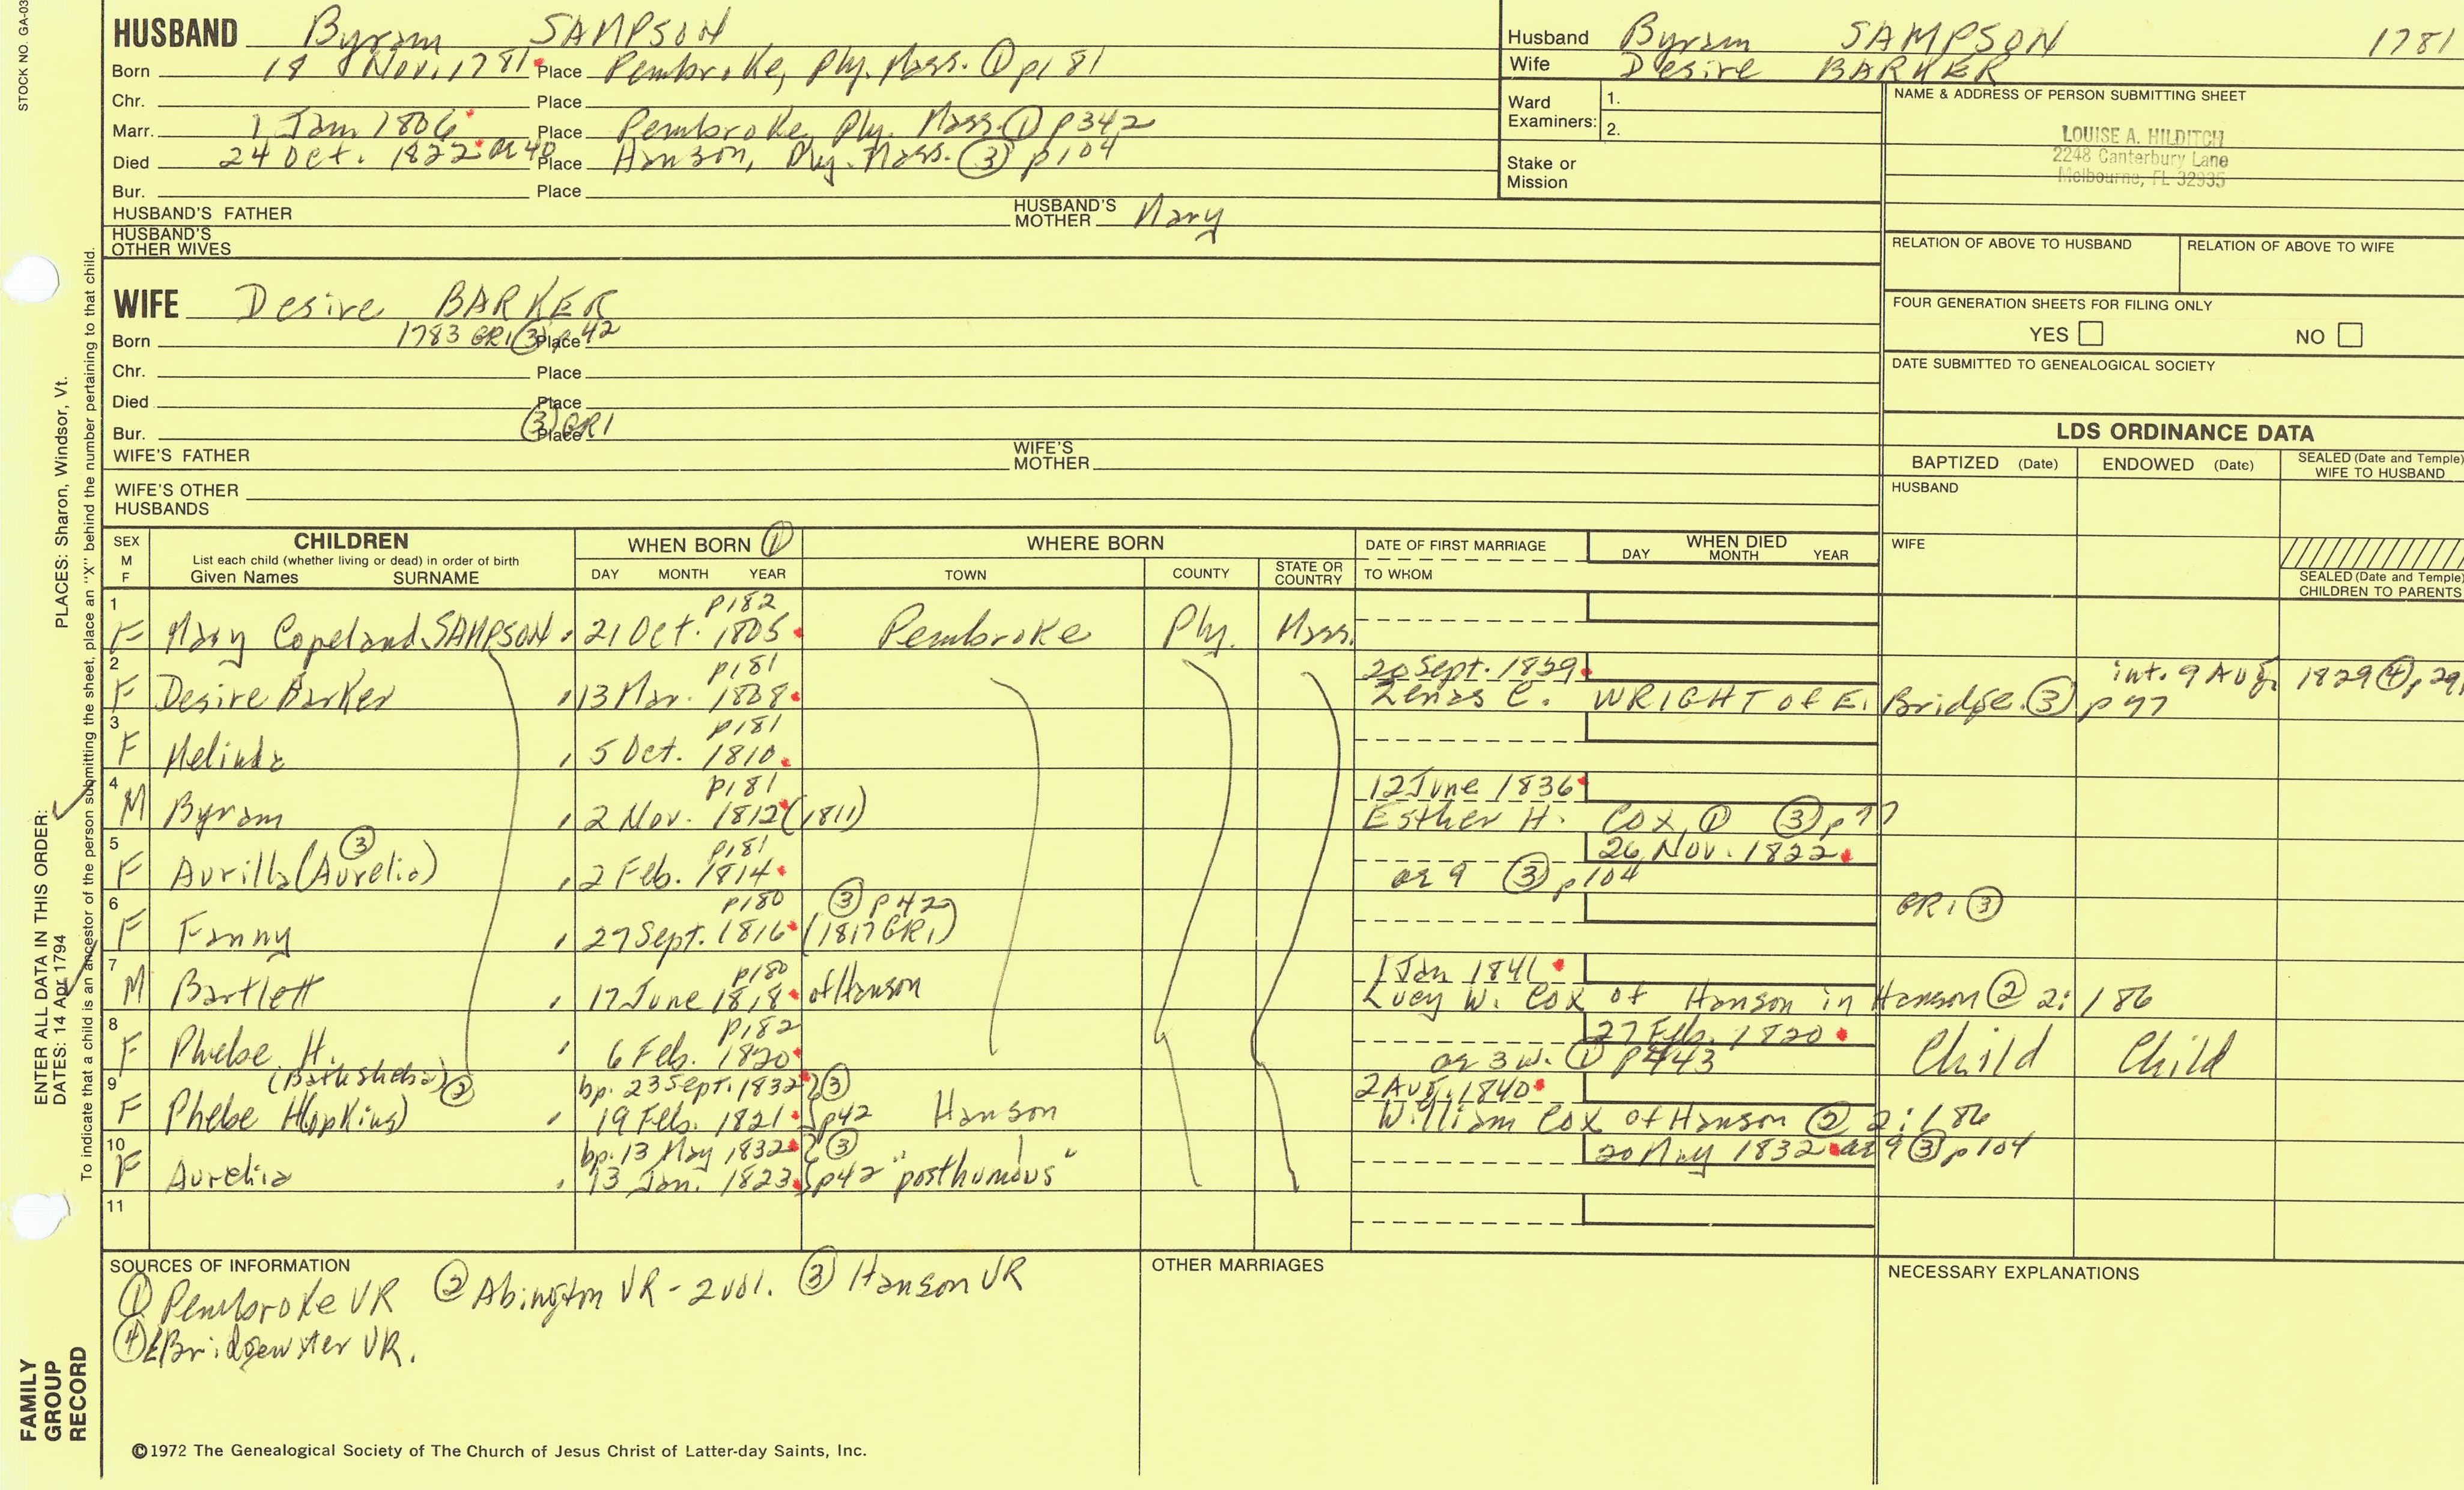 STOCK NO. GA-03
HUSBAND Byram SAMPSON
Born 18 Nov. 1781 Place Pembroke, Ply. Mass. ① p181
Chr. Place
Marr. 1 Jan 1806 Place Pembroke, Ply. Mass. ① p342
Died 24 Oct. 1822 ae 40 Place Hanson, Ply. Mass. ③ p104
Bur. Place
HUSBAND'S FATHER HUSBAND'S MOTHER Mary
HUSBAND'S OTHER WIVES
Husband Byram SAMPSON 1781
Wife Desire BARKER
Ward Examiners: 1.
2.
Stake or Mission
NAME & ADDRESS OF PERSON SUBMITTING SHEET
LOUISE A. HILDITCH
2248 Canterbury Lane
Melbourne, FL 32935
RELATION OF ABOVE TO HUSBAND RELATION OF ABOVE TO WIFE
FOUR GENERATION SHEETS FOR FILING ONLY
YES NO
DATE SUBMITTED TO GENEALOGICAL SOCIETY
WIFE Desire BARKER
Born 1783 GR1 ③ p42 Place
Chr. Place
Died Place
Bur. ③ GR1 Place
WIFE'S FATHER WIFE'S MOTHER
WIFE'S OTHER HUSBANDS
LDS ORDINANCE DATA
BAPTIZED (Date) ENDOWED (Date) SEALED (Date and Temple) WIFE TO HUSBAND
HUSBAND
WIFE
SEALED (Date and Temple) CHILDREN TO PARENTS
SEX M F
CHILDREN
List each child (whether living or dead) in order of birth
Given Names SURNAME
WHEN BORN ①
DAY MONTH YEAR
WHERE BORN
TOWN COUNTY STATE OR COUNTRY
DATE OF FIRST MARRIAGE
TO WHOM
WHEN DIED
DAY MONTH YEAR
1 p182
F Mary Copeland SAMPSON 21 Oct. 1805 Pembroke Ply. Mass.
2 p181 20 Sept. 1829 int. 9 Aug. 1829 ④ p291
F Desire Barker 13 Mar. 1808 Zenas C. WRIGHT of E. Bridge. ③ p77
3 p181
F Melinda 5 Oct. 1810
4 p181 12 June 1836
M Byram 2 Nov. 1812 (1811) Esther H. Cox ① ③ p77
5 ③ p181 26 Nov. 1822
F Aurilla (Aurelia) 2 Feb. 1814 ae 9 ③ p104
6 p180 ③ p42 GR1 ③
F Fanny 27 Sept. 1816 (1817 GR1)
7 p180 1 Jan 1841
M Bartlett 17 June 1818 of Hanson Lucy W. Cox of Hanson in Hanson ② 2:186
8 p182 27 Feb. 1820
F Phebe H. 6 Feb. 1820 ae 3 w. ① p443 Child Child
9 (Bathsheba) ② bp. 23 Sept. 1832 ③ 2 Aug. 1840
F Phebe H(opkins) 19 Feb. 1821 p42 Hanson William Cox of Hanson ② 2:186
10 bp. 13 May 1832 ③ 20 May 1832 ae 9 ③ p104
F Aurelia 13 Jan. 1823 p42 "posthumous"
11
SOURCES OF INFORMATION
① Pembroke VR ② Abington VR - 2 vol. ③ Hanson VR
④ E Bridgewater VR.
OTHER MARRIAGES
NECESSARY EXPLANATIONS
©1972 The Genealogical Society of The Church of Jesus Christ of Latter-day Saints, Inc.
FAMILY GROUP RECORD
ENTER ALL DATA IN THIS ORDER:
DATES: 14 Apr 1794
PLACES: Sharon, Windsor, Vt.
To indicate that a child is an ancestor of the person submitting the sheet, place an "X" behind the number pertaining to that child.